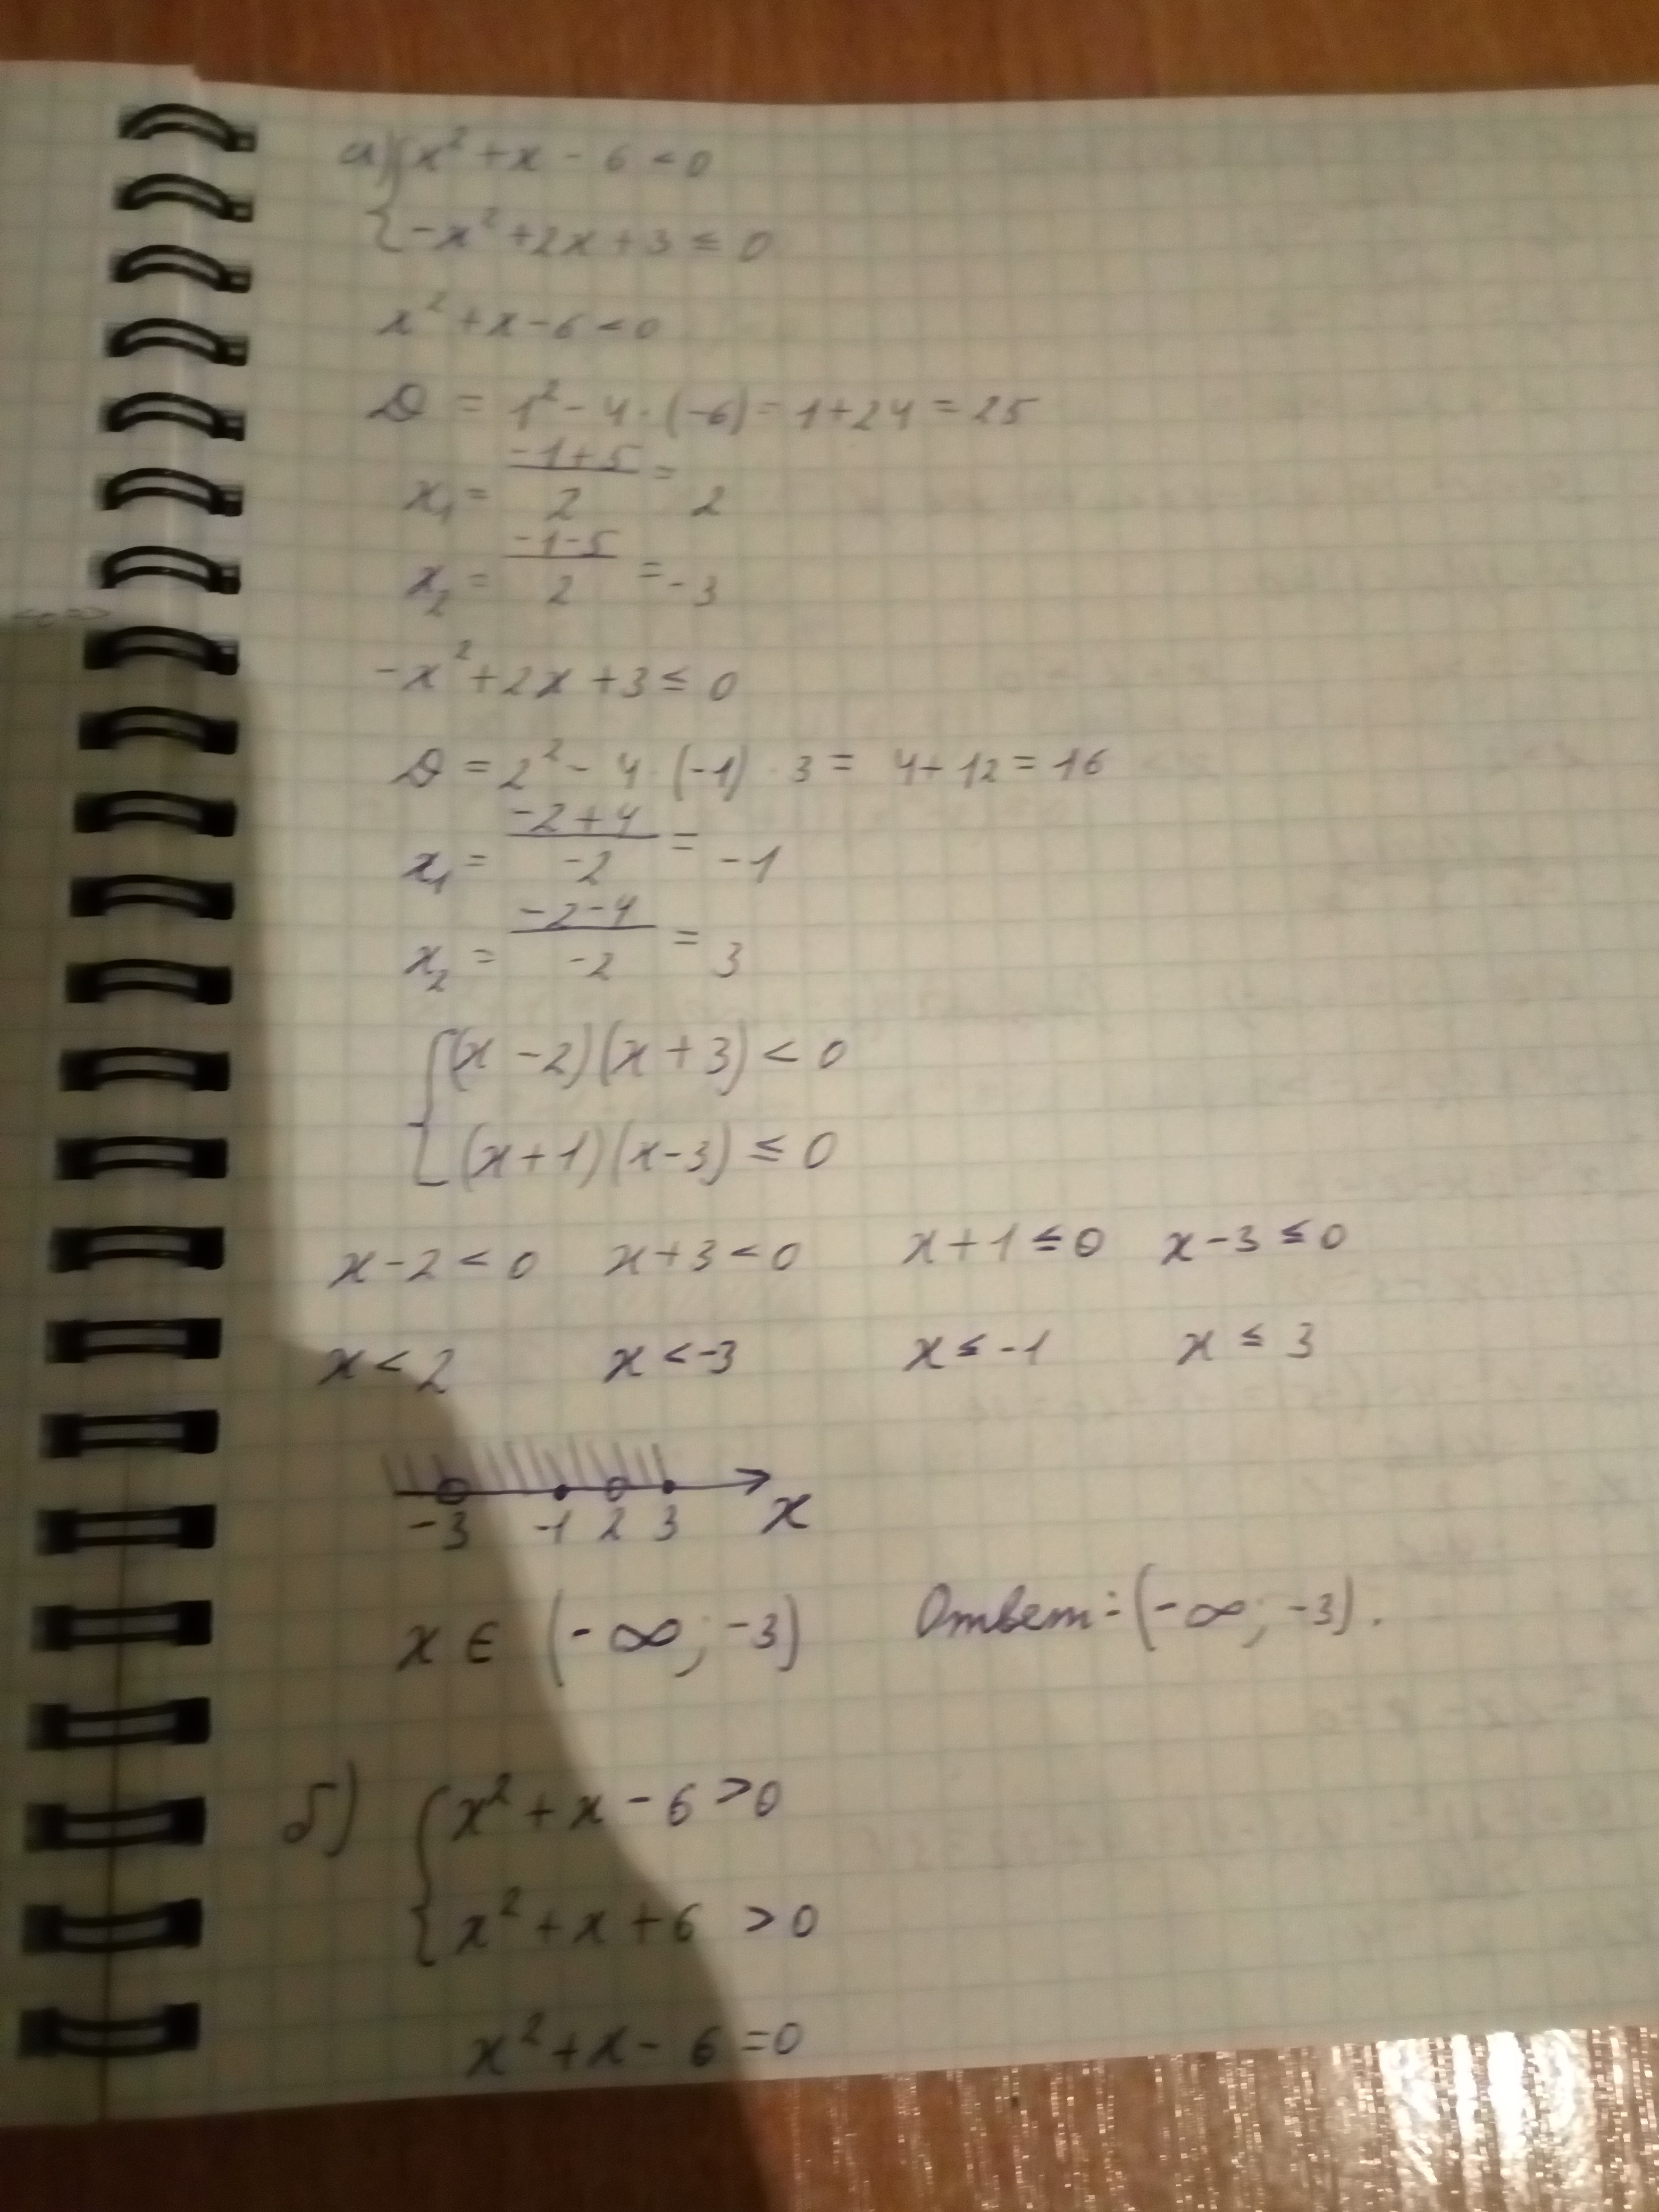 а) { x² + x - 6 < 0
{ -x² + 2x + 3 ≤ 0
x² + x - 6 < 0
D = 1² - 4 · (-6) = 1 + 24 = 25
x₁ = (-1+5)/2 = 2
x₂ = (-1-5)/2 = -3
-x² + 2x + 3 ≤ 0
D = 2² - 4 · (-1) · 3 = 4 + 12 = 16
x₁ = (-2+4)/(-2) = -1
x₂ = (-2-4)/(-2) = 3
{ (x - 2)(x + 3) < 0
{ (x + 1)(x - 3) ≤ 0
x - 2 < 0 x + 3 < 0 x + 1 ≤ 0 x - 3 ≤ 0
x < 2 x < -3 x ≤ -1 x ≤ 3
-3 -1 2 3 x
x ∈ (-∞; -3) Ответ: (-∞; -3).
б) { x² + x - 6 > 0
{ x² + x + 6 > 0
x² + x - 6 = 0